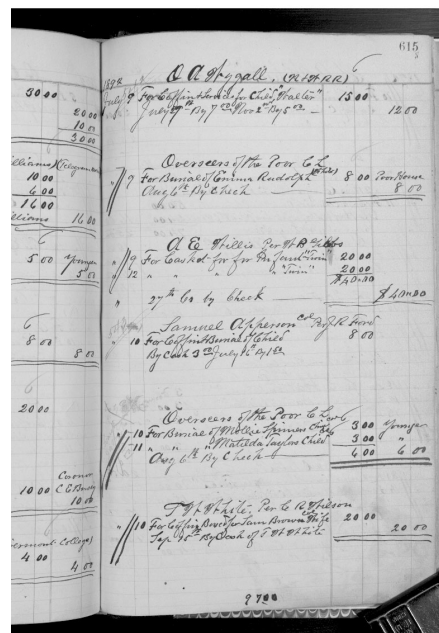 30 00
20 00
10 00
30 00
illiams) (Telegram
10 00
6 00
16 00
illiams 16 00
6
5 00 Younger
5 00
6
8 00
8 00
6
20 00
Coroner
10 00 C E
10 00
ermont College)
4 00
4 00
615
5
1894
O A Wygall, (N & W RR)
July 9 For Coffin & Service for Child, "Walter" 15 00
July 27th By 7 00 Nov 2nd By 5 00 — 12 00
Overseers of the Poor C L
" 9 For Burial of Emma Rudolph (White) 8 00 Poor House
Aug 6th By Check 8 00
A E Willis Per W A Gibbs
" 9 For Casket for "Twin" 20 00
" 12 " " " "Twin" 20 00
$40.00
" 27th By Check — $40.00
Samuel Apperson Col Per J. R Ford
" 10 For Coffin & Burial of Child 8 00
By Cash 3 00 July 16th By 1 00
Overseers of the Poor C L
" 10 For Burial of Mollie Child 3 00 Younger
" 11 " " " Matilda Taylors Child 3 00 "
Aug 6th By Check 6 00 6 00
T W White, Per C R Wilson
" 10 For Coffin Box for Sam Brown Wife 20 00
Sep 15th By Cash of T W White 20 00
97 00